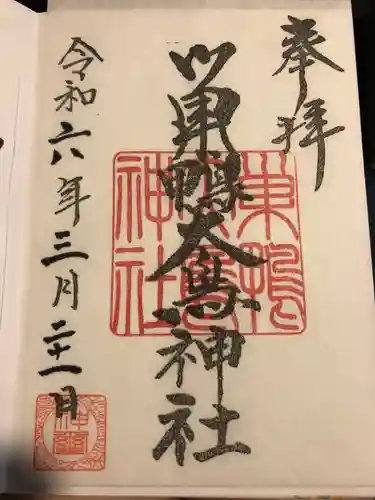 奉拝
巣鴨大鳥神社
令和六年三月二十一日
巣鴨大鳥神社